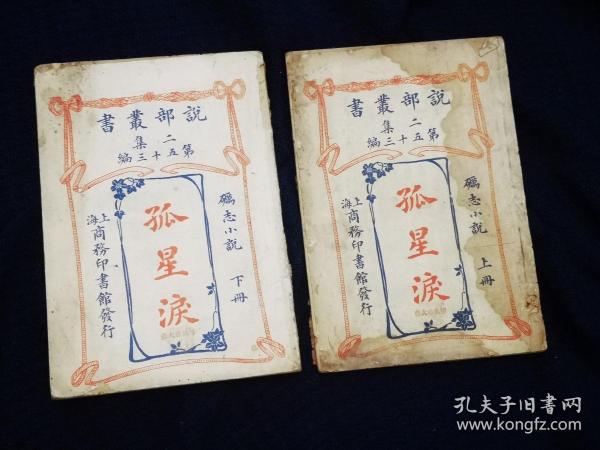 說部叢書
二集
第五十三編
礪志小說 下冊
孤星淚
上海商務印書館發行
說部叢書
二集
第五十三編
礪志小說 上冊
孤星淚
上海商務印書館發行
孔夫子旧书网
www.kongfz.com